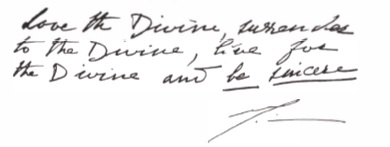 Love the Divine, surrender
to the Divine, live for
the Divine and be sincere